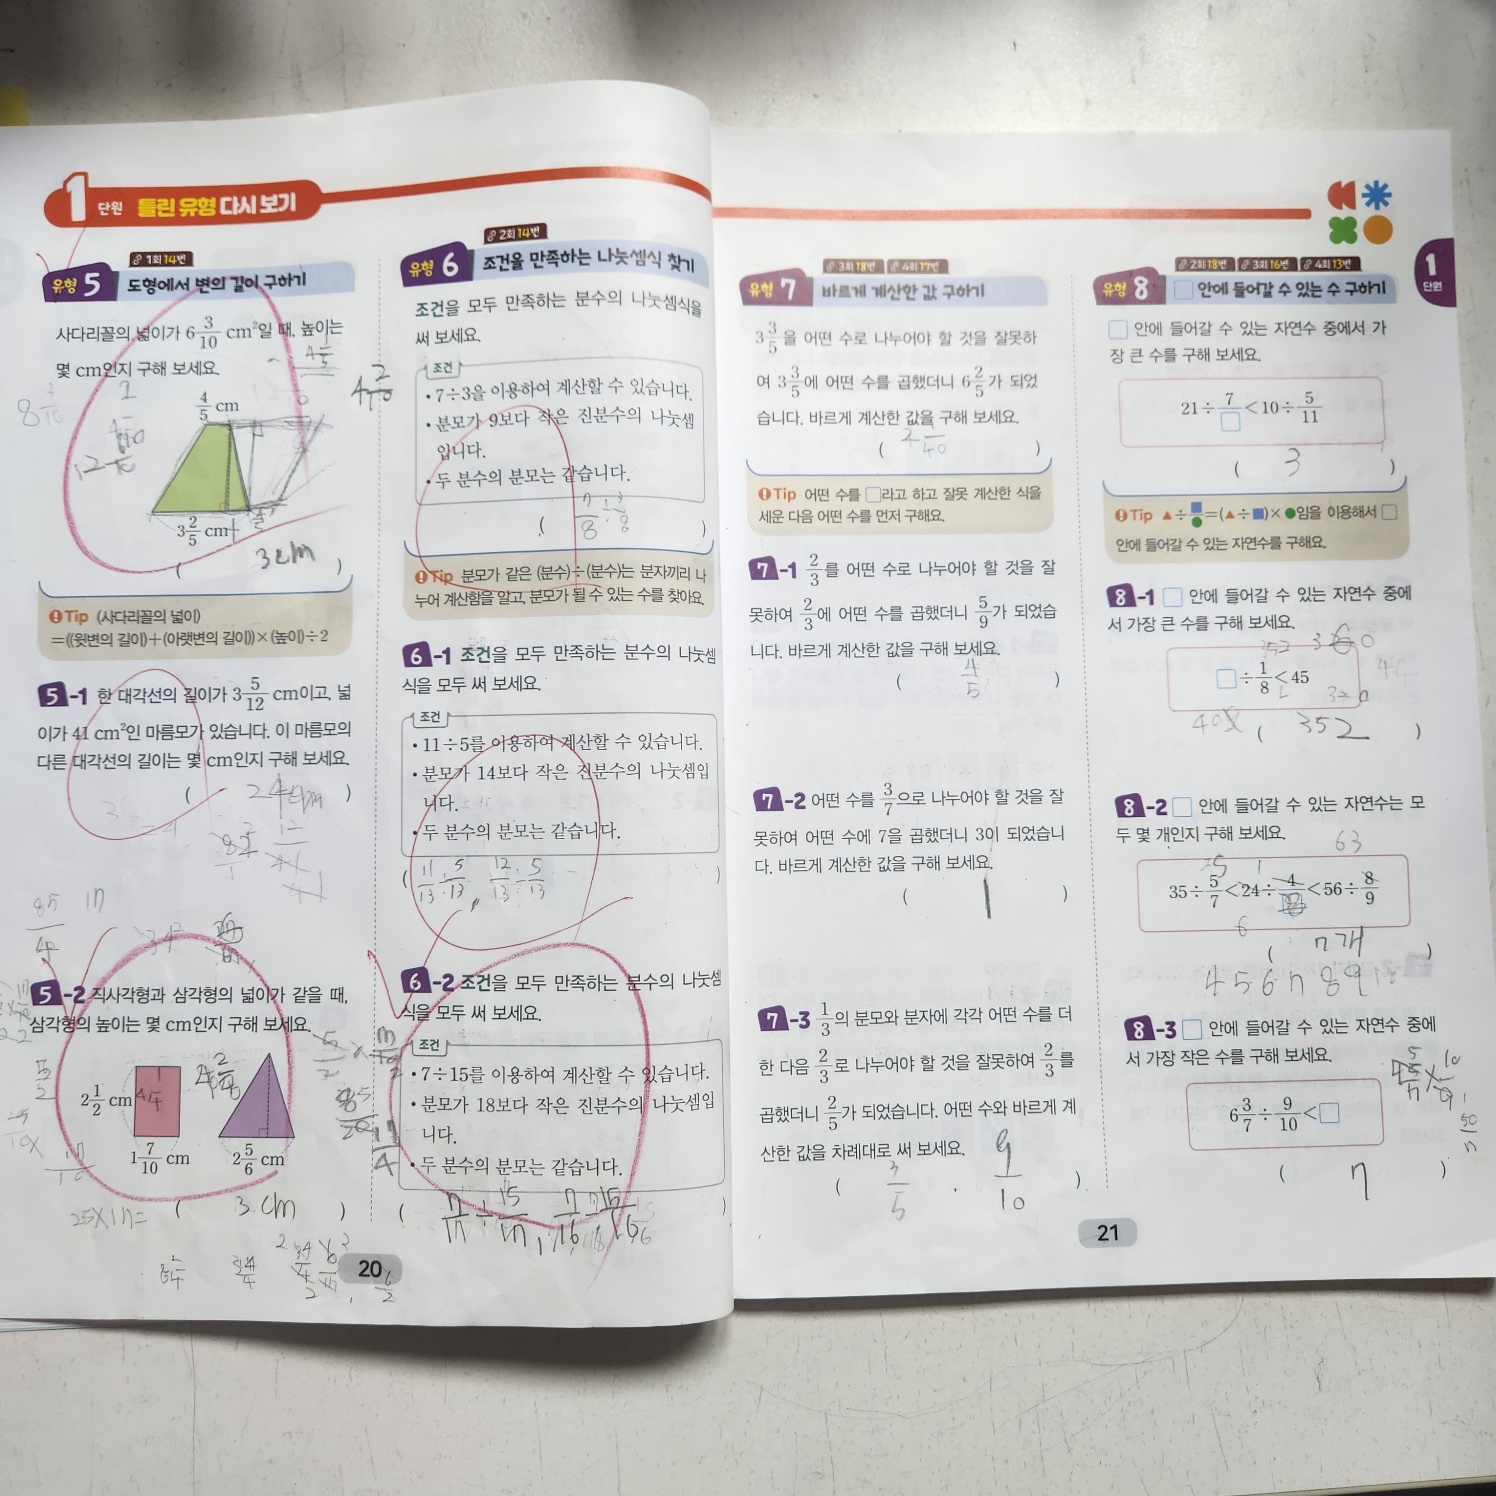 1 단원 틀린 유형 다시 보기
1회 14번
유형 5 도형에서 변의 길이 구하기
사다리꼴의 넓이가 6 3/10 cm²일 때, 높이는
몇 cm인지 구해 보세요.
4/5 cm
3 2/5 cm
( 3cm )
Tip (사다리꼴의 넓이)
=((윗변의 길이)+(아랫변의 길이))×(높이)÷2
5-1 한 대각선의 길이가 3 5/12 cm이고, 넓
이가 41 cm²인 마름모가 있습니다. 이 마름모의
다른 대각선의 길이는 몇 cm인지 구해 보세요.
( 24cm )
5-2 직사각형과 삼각형의 넓이가 같을 때,
삼각형의 높이는 몇 cm인지 구해 보세요.
2 1/2 cm
1 7/10 cm
2 5/6 cm
( 3 cm )
20
2회 14번
유형 6 조건을 만족하는 나눗셈식 찾기
조건을 모두 만족하는 분수의 나눗셈식을
써 보세요.
조건
• 7÷3을 이용하여 계산할 수 있습니다.
• 분모가 9보다 작은 진분수의 나눗셈
입니다.
• 두 분수의 분모는 같습니다.
( 7/8 ÷ 3/8 )
Tip 분모가 같은 (분수)÷(분수)는 분자끼리 나
누어 계산함을 알고, 분모가 될 수 있는 수를 찾아요.
6-1 조건을 모두 만족하는 분수의 나눗셈
식을 모두 써 보세요.
조건
• 11÷5를 이용하여 계산할 수 있습니다.
• 분모가 14보다 작은 진분수의 나눗셈입
니다.
• 두 분수의 분모는 같습니다.
( 11/13 ÷ 5/13 , 12/13 ÷ 5/13 )
6-2 조건을 모두 만족하는 분수의 나눗셈
식을 모두 써 보세요.
조건
• 7÷15를 이용하여 계산할 수 있습니다.
• 분모가 18보다 작은 진분수의 나눗셈입
니다.
• 두 분수의 분모는 같습니다.
( 7/17 ÷ 15/17 , 7/16 ÷ 15/16 )
3회 18번 4회 17번
유형 7 바르게 계산한 값 구하기
3 3/5을 어떤 수로 나누어야 할 것을 잘못하
여 3 3/5에 어떤 수를 곱했더니 6 2/5가 되었
습니다. 바르게 계산한 값을 구해 보세요.
( )
Tip 어떤 수를 □라고 하고 잘못 계산한 식을
세운 다음 어떤 수를 먼저 구해요.
7-1 2/3를 어떤 수로 나누어야 할 것을 잘
못하여 2/3에 어떤 수를 곱했더니 5/9가 되었습
니다. 바르게 계산한 값을 구해 보세요.
( 4/5 )
7-2 어떤 수를 3/7으로 나누어야 할 것을 잘
못하여 어떤 수에 7을 곱했더니 3이 되었습니
다. 바르게 계산한 값을 구해 보세요.
( 1 )
7-3 1/3의 분모와 분자에 각각 어떤 수를 더
한 다음 2/3로 나누어야 할 것을 잘못하여 2/3를
곱했더니 2/5가 되었습니다. 어떤 수와 바르게 계
산한 값을 차례대로 써 보세요.
( 3/5 , 9/10 )
21
1 단원
2회 18번 3회 16번 4회 13번
유형 8 □ 안에 들어갈 수 있는 수 구하기
□ 안에 들어갈 수 있는 자연수 중에서 가
장 큰 수를 구해 보세요.
21÷7/□<10÷5/11
( 3 )
Tip ▲÷■/●=(▲÷■)×●임을 이용해서 □
안에 들어갈 수 있는 자연수를 구해요.
8-1 □ 안에 들어갈 수 있는 자연수 중에
서 가장 큰 수를 구해 보세요.
□÷1/8<45
( 352 )
8-2 □ 안에 들어갈 수 있는 자연수는 모
두 몇 개인지 구해 보세요.
63
35÷5/7<24÷4/□<56÷8/9
( 7개 )
4 5 6 7 8 9 10
8-3 □ 안에 들어갈 수 있는 자연수 중에
서 가장 작은 수를 구해 보세요.
6 3/7÷9/10<□
( 7 )